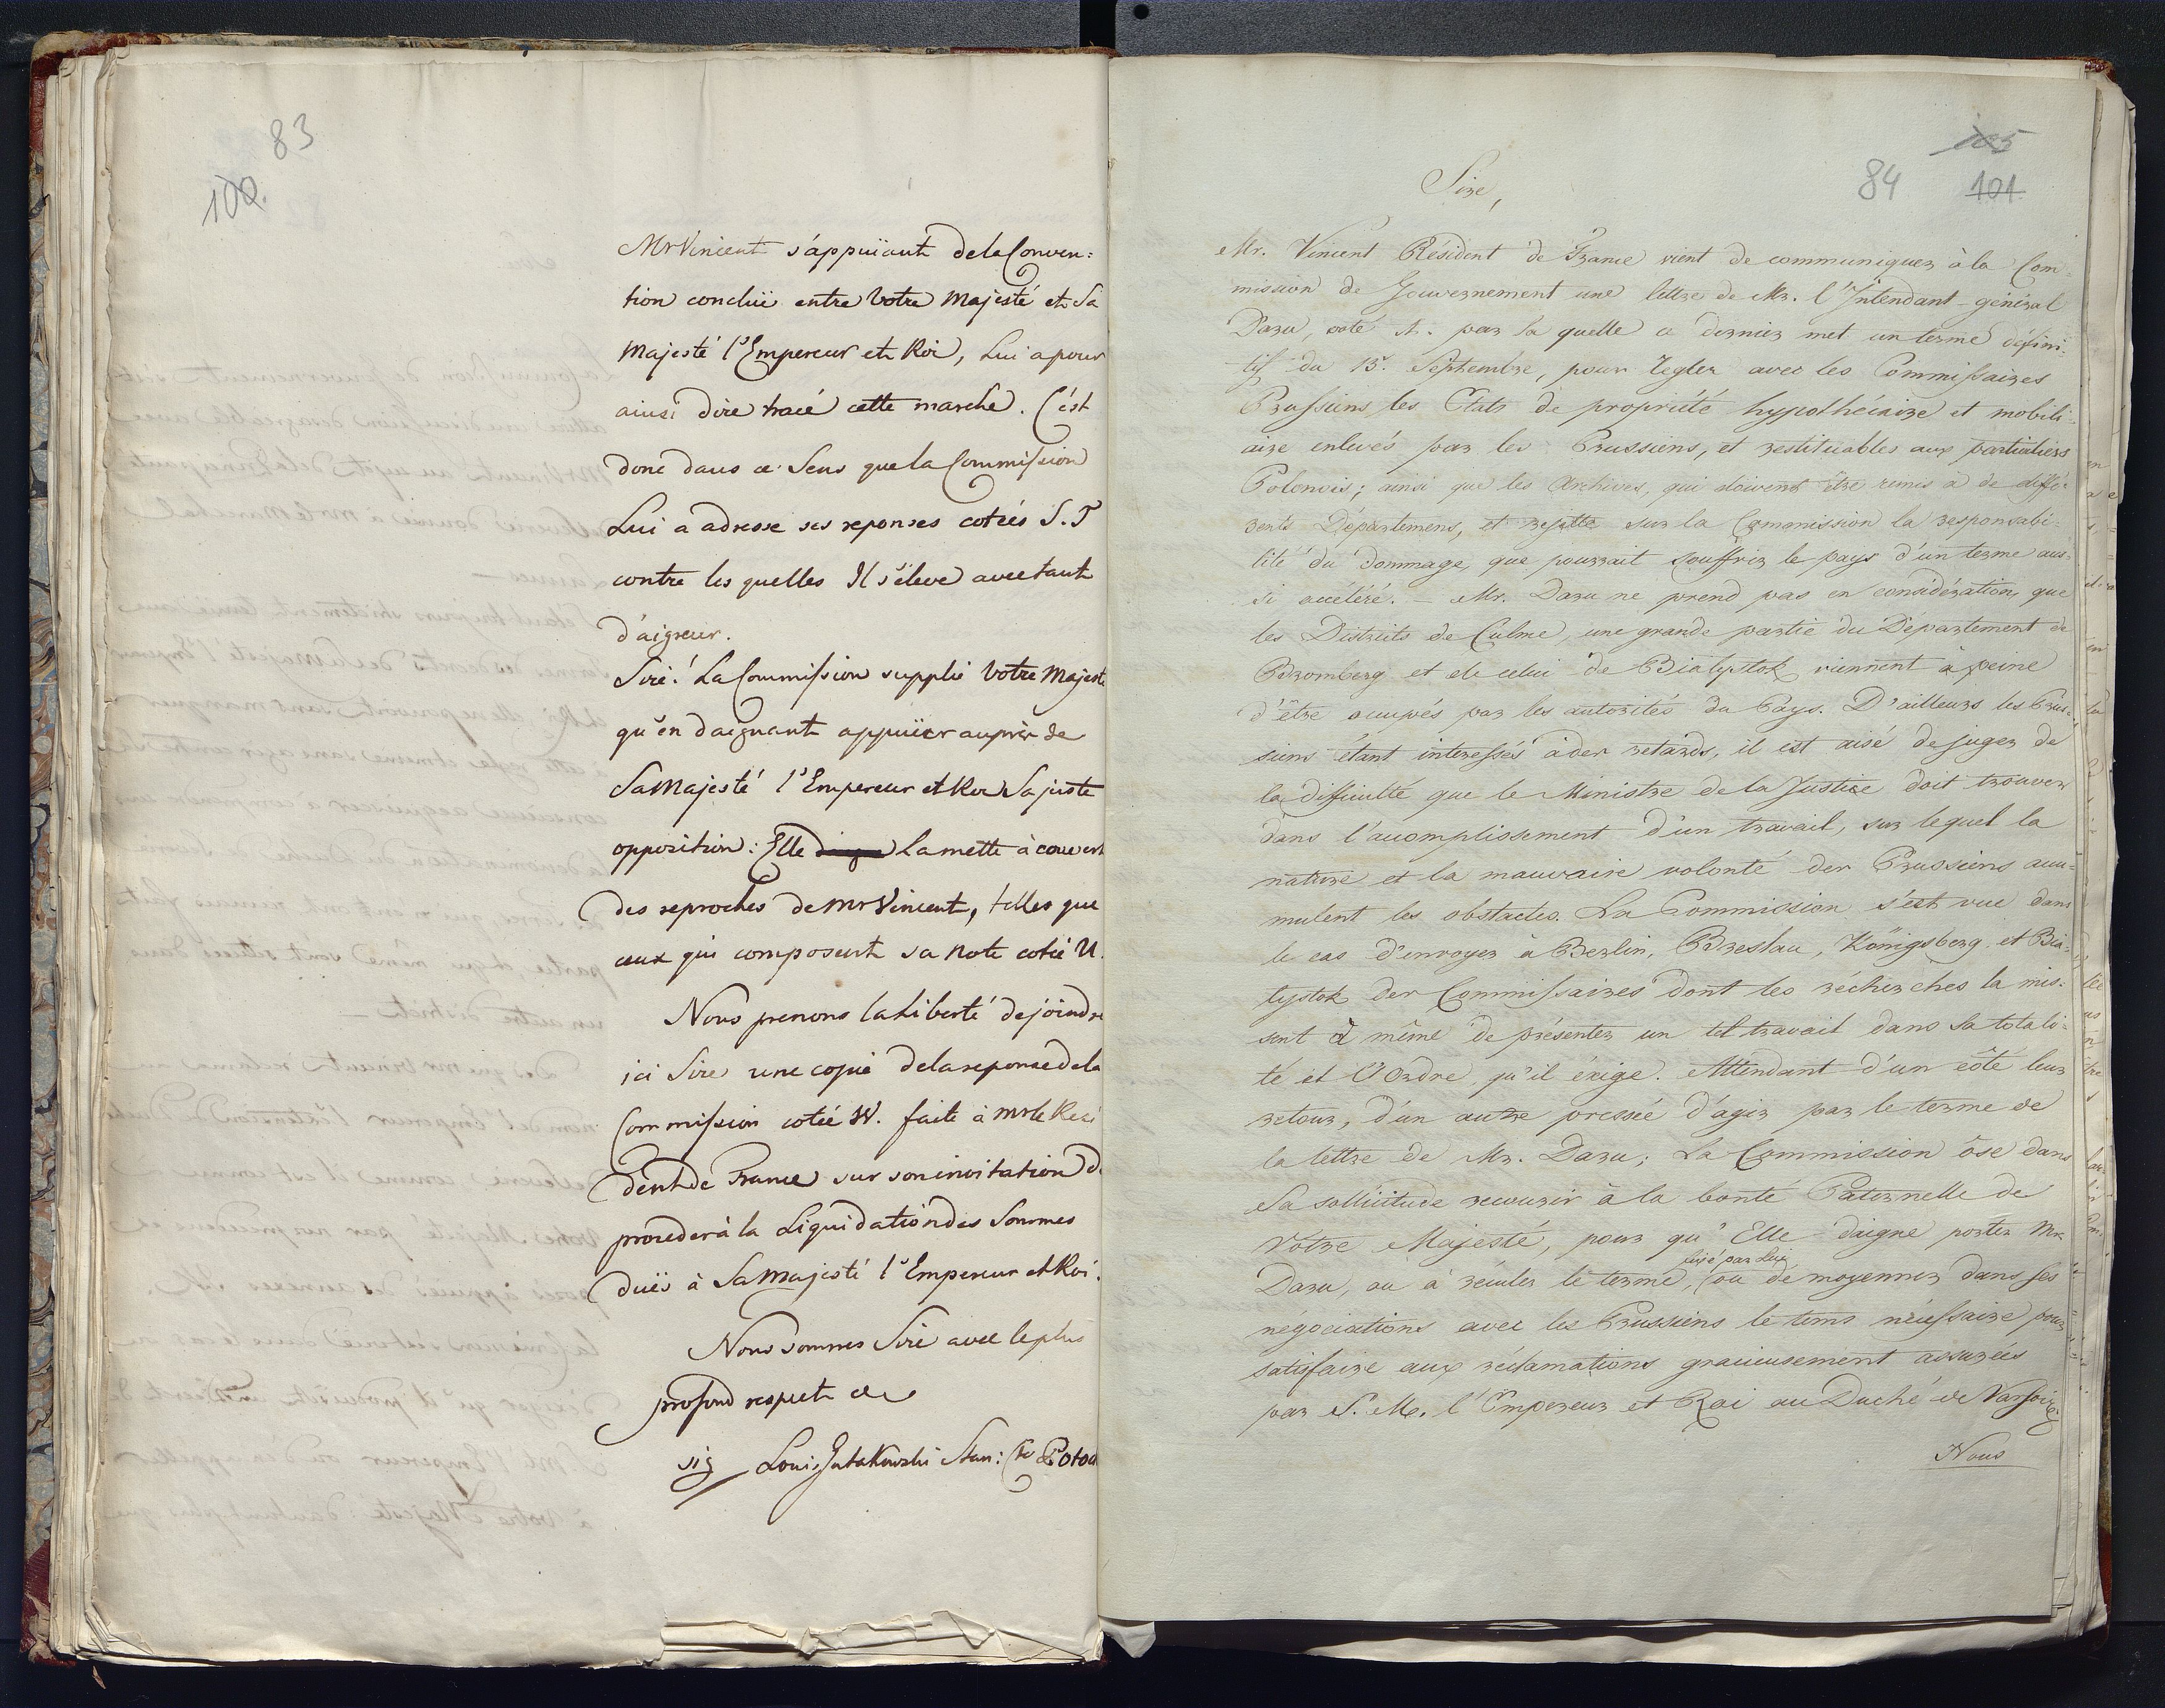 83
100.
Mr Vincent s'appuïant de la Conven:
tion concluë entre Votre Majesté et Sa
Majesté l'Empereur et Roi, Lui a pour
ainsi dire tracé cette marche. C'ést
donc dans ce Sens que la Commission
Lui a adressé ses reponses cotées S. T
contre les quelles Il s'éleve avec tant
d'aigreur.
Sire! La Commission supplie Votre Majesté
qu'en daignant appuïer auprès de
Sa Majesté l'Empereur et Roi Sa juste
opposition: Elle la mette à couvert
des reproches de Mr Vincent, telles que
ceux qui composent sa Note cotée U.
Nous prenons la Liberté de joindre
ici Sire une copie de la reponse de la
Commission cotée W. faite à Mr le Resi
dent de France sur son invitation de
proceder à la Liquidation des Sommes
duës à Sa Majesté l'Empereur et Roi.
Nous sommes Sire avec le plus
profond respect
sig Louis Gutakowski Stan: Cte Potoc
84
105
101
Sire,
Mr. Vincent Résident de France vient de communiquer à la Com=
mission de Gouvernement une lettre de Mr. l'Intendant-général
Daru, coté A. par la quelle ce dernier met un terme défini=
tif du 15. Septembre, pour regler avec les Commissaires
Prussiens les Etats de propriété hypothécaire et mobili=
aire enlevés par les Prussiens, et restituables aux particuliers
Polonois; ainsi que les Archives, qui doivent être remis à de diffé=
rents Départemens, et rejette sur la Commission la responsabi=
lité du dommage, que pourrait souffrir le pays d'un terme aus=
si accéléré. – Mr. Daru ne prend pas en considération, que
les Districts de Culme, une grande partie du Département de
Bromberg et de celui de Bialystok viennent à peine
d'être occupés par les autorités du Pays. D'ailleurs les Prus=
siens étant interessés à der retards, il est aisé de juger de
la difficulté que le Ministre de la Justice doit trouver
dans l'accomplissement d'un travail, sur lequel la
nature et la mauvaise volonté der Prussiens accu=
mulent les obstacles. La Commission s'est vue dans
le cas d'envoyer à Berlin, Breslau, Königsberg et Bia=
lystok der Commissaires dont les récherches la mis=
sent à même de présenter un tel travail dans sa totali=
té et l'Ordre, qu'il éxige. Attendant d'un côté leur
retour, d'un autre pressée d'agir par le terme de
la lettre de Mr. Daru; La Commission ôse dans
Sa sollicitude recourir à la bonté Paternelle de
Vôtre Majesté, pour qu'Elle daigne porter Mr.
fixé par Lui
Daru, ou à réculer le terme, ou de moyenner dans ses
négociations avec les Prussiens le tems nécessaire pour
satisfaire aux réclamations gracieusement assurées
par S. M. l'Empereur et Roi au Duché de Varsovie,
Nous